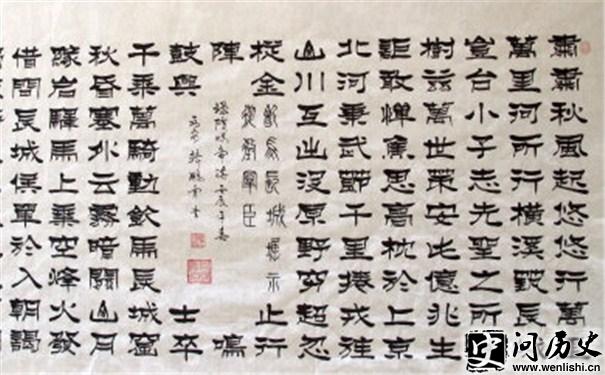 肅肅秋風起悠悠行萬
萬里河所行橫漠長
豈台小子志先聖之所
樹茲萬世策安此億兆生
詎敢憚焦思高枕於上京
北河秉武節千里捲戎旌
山川互出沒原野窮超忽
摐金止行
陣鳴
鼓興士卒
千乘萬騎動飲馬長城窟
秋昏塞外雲霧暗關山月
緣岩驛馬上乘空烽火發
借問長城侯單於入朝謁
飲馬長城窟示
從征羣臣
隋煬帝詩壬辰年春
问历史
www.wenlishi.cn